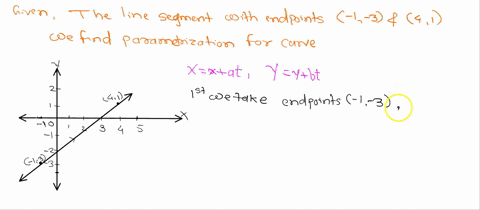 Given, The line segment with endpoints (-1,-3) & (4,1)
we find parametrization for curve
X=x+at, Y=y+bt
1st we take endpoints (-1,-3),
Y
2
1
(4,1)
X
-1 0 1 2 3 4 5
-1
-2
(-1,-3)
-3